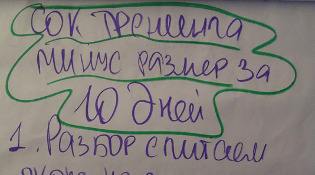 Сок тренинга
минус размер за
10 дней
1. Разбор с питаем